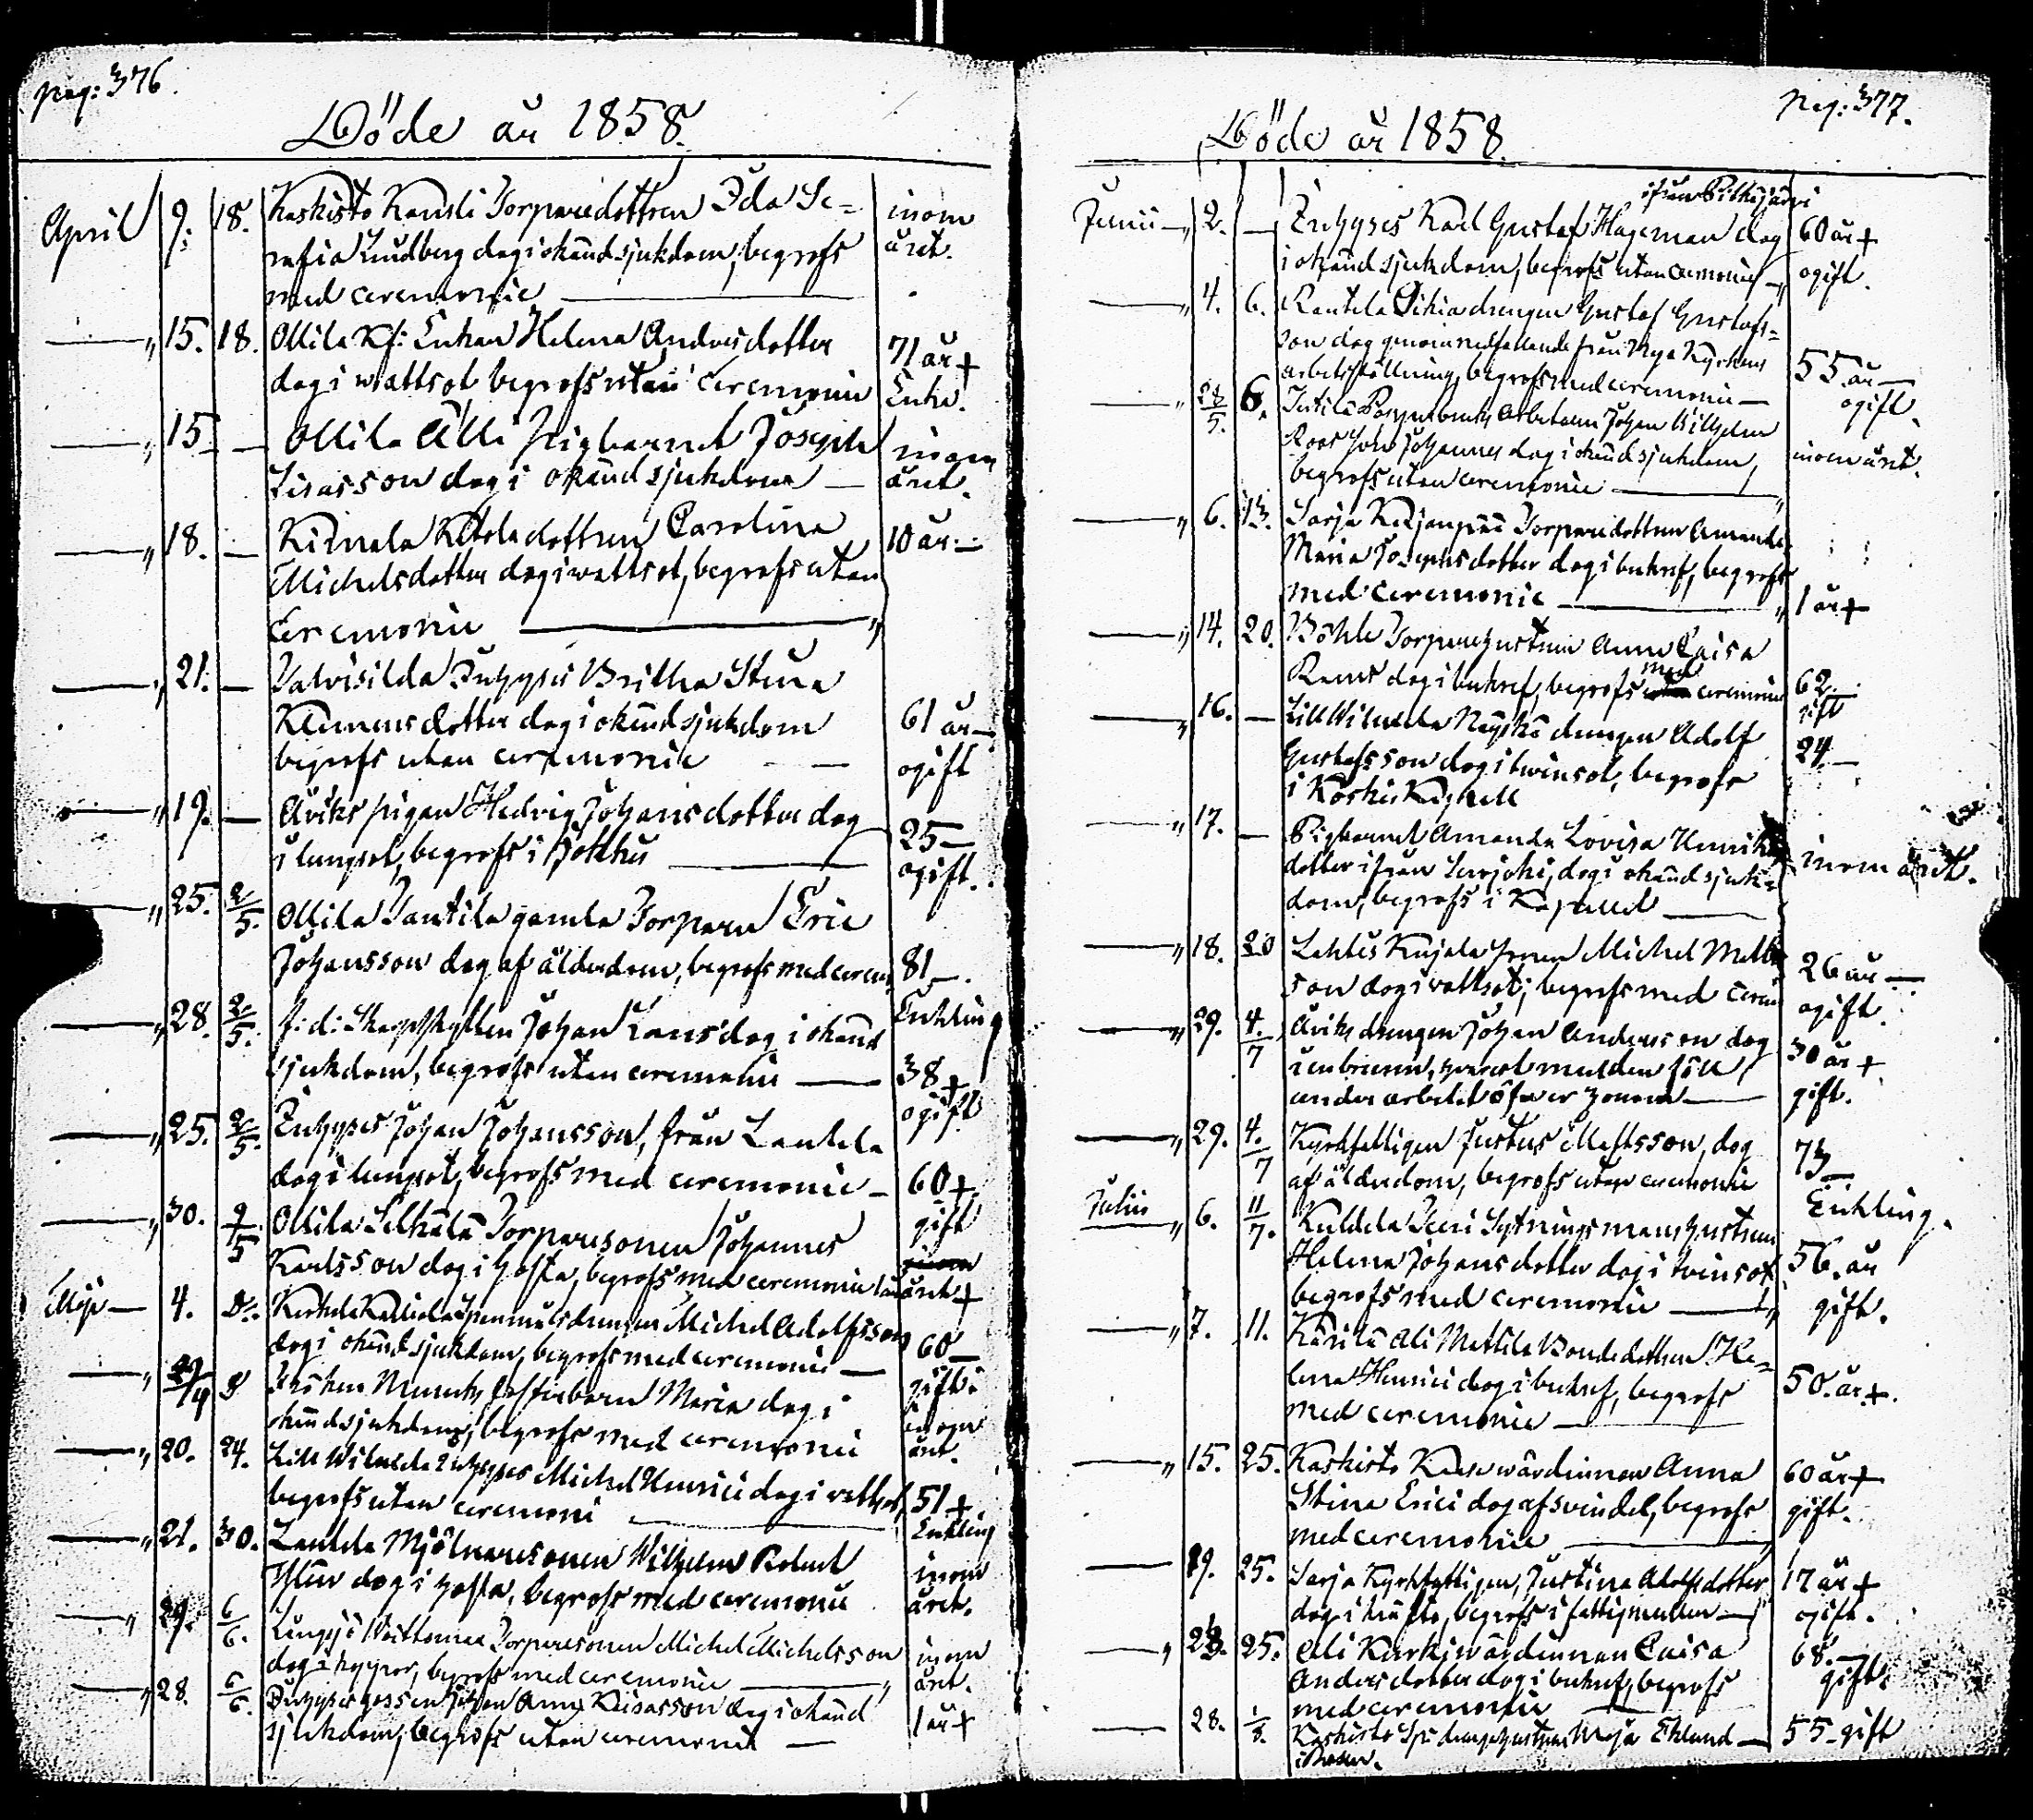 pag: 376.
Döde år 1858.
April 9. 18. Koskisto Kansli Torparedottren Ida Se=
rafia Lundberg dog i okänd sjukdom, begrofs
med ceremonie — inom året.
" 15. 18. Ollila Kf: Enkan Helena Andersdotter
dog i wattsot begrofs utan ceremonie 71 år + Enka.
" 15. — Ollila Alli pigbarnet Joseph
Lisasson dog i okänd sjukdom — inom året.
" 18. — Ketola dottren Carolina 10 år —
Michelsdotter dog i wattsot, begrofs utan
Ceremonie — "
" 21. — Inhyses Britha Stina
Klemensdotter dog i okänd sjukdom 61 år —
begrofs utan ceremonie — ogift
" 19. — Åviks pigan Hedvig Johansdotter dog 25 —
i lungsot, begrofs i — ogift.
" 25. 2/5. Ollila Jantila gamla Torparn Eric
Johansson dog af ålderdom, begrofs med cerem. 81 —
Enkling
" 28. 2/5. f: d: Skarpskytten Johan Lans dog i okänd
sjukdom, begrofs utan ceremonie — 38 + ogift
" 25. 2/5. Inhyses Johan Johansson, från Lautela
dog i lungsot, begrofs med ceremonie — 60 + gift
" 30. 9/5 Ollila Torparesonen Johannes
Karlsson dog i hosta, begrofs med ceremonie året +
Maji — 4. Michel Adolfsson
dog i okänd sjukdom, begrofs med ceremonie — 60 — gift.
" barn Maria dog i
okänd sjukdom, begrofs med ceremonie inom året.
" 20. 24. Lill Wilnela Inhyses Michel Henrici dog i vattsot, 51 +
begrofs utan ceremoni — Enkling
" 21. 30. Lautela Mjölnaresonen Wilhelm Robert inom
dog i hosta, begrofs med ceremonie året.
" 29. 6/6. Torparesonen Michel Michelsson inom
dog i begrofs med ceremonie — " året.
" 28. 6/6. Inhyses gossen dog i okänd
sjukdom, begrofs utan ceremonie — 1 år +
pag: 377.
Döde år 1858.
ifrån Pitkäjärvi
Junii — " 2. — Inhyses Karl Gustaf Hageman dog 60 år +
i okänd sjukdom, begrofs utan ceremonie — " ogift.
" 4. 6. Rautela drengen Gustaf Gustafs=
son dog genom nedfallande från Nya Kyrkans
arbetsställning, begrofs med ceremonie — 55 år — ogift.
" 28/5. 6. Arbetaren Johan Wilhelm
Roos son Johannes dog i okänd sjukdom, inom året.
begrofs utan ceremonie — "
" 6. 13. Sarja Torparedottren Amanda
Maria Josephsdotter dog i bukref, begrofs
med ceremonie — " 1 år +
" 14. 20. Torparehustrun Anna Caisa
dog i bukref, begrofs med ceremonie 62 — gift
" 16. — Lill Wilnela drengen Adolf 24 —
Gustafsson dog i twinsot, begrofs
i Koskis Kapell
" 17. — Pigbarnet Amanda Lovisa Henriks
dotter ifrån dog i okänd sjuk= inom året.
dom, begrofs i Kapellet —
" 18. 20 Lahtis Kujala sonen Michel Matts
son dog i vattsot, begrofs med cerem 26 år — ogift.
" 29. 4./7 Åviks drengen Johan Andersson dog 30 år +
i en brunn, hvarest mullden föll
under arbetet öfver honom — gift.
" 29. 4./7 Kyrkfattigen Justus Mattsson, dog 73 —
af ålderdom, begrofs utan ceremonie Enkling.
Julii " 6. 11/7. Kuldela Sytningsmanshustrun
Helena Johansdotter dog i twinsot 56. år
begrofs med ceremonie — " gift.
" 7. 11. Kärilä Ali Mattila Bondedottren He=
lena Henrici dog i bukref, begrofs 50. år +.
med ceremonie —
" 15. 25. Koskisto wärdinnan Anna 60 år +
Stina Erici dog af svindel, begrofs gift.
med ceremonie — "
19. 25. Sarja Kyrkfattigen, Justina Adolfsdotter 17 år +
dog i kräfta, begrofs i fattigmullen — " ogift.
" 23. 25. Ali Kärki wärdinnan Caisa 68. —
Andersdotter dog i bukref, begrofs gift.
med ceremonie —
28. 1/8. Koskisto Maja Eklund — 55 — gift